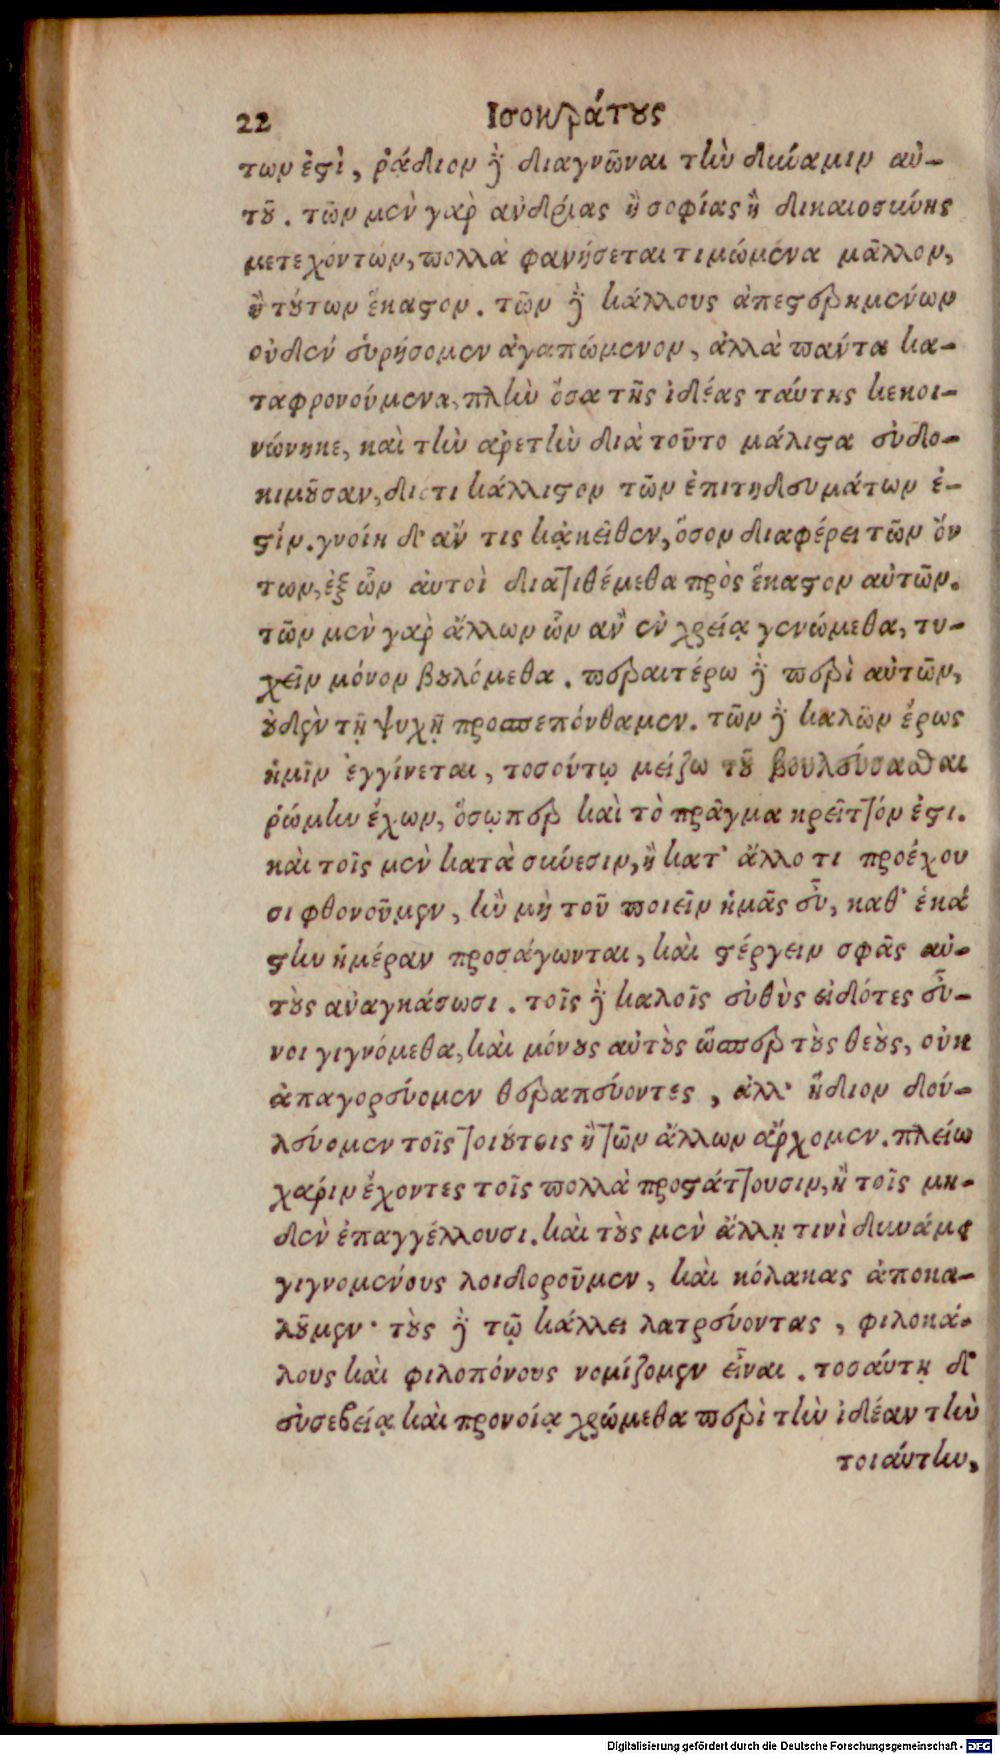 22 Ισοκράτους
των ἐστὶ, ῥᾴδιον δὲ διαγνῶναι τὴν δύναμιν αὐ-
τοῦ. τῶν μὲν γὰρ ἀνδρίας ἢ σοφίας ἢ δικαιοσύνης
μετεχόντων, πολλὰ φανήσεται τιμώμενα μᾶλλον,
ἢ τούτων ἕκαστον. τῶν δὲ κάλλους ἀπεστερημένων
οὐδὲν εὑρήσομεν ἀγαπώμενον, ἀλλὰ πάντα κα-
ταφρονούμενα, πλὴν ὅσα τῆς ἰδέας ταύτης κεκοι-
νώνηκε, καὶ τὴν ἀρετὴν διὰ τοῦτο μάλιστα εὐδο-
κιμοῦσαν, διότι κάλλιστον τῶν ἐπιτηδευμάτων ἐ-
στίν. γνοίη δ' ἄν τις κᾀκεῖθεν, ὅσον διαφέρει τῶν ὄν
των, ἐξ ὧν ἀυτοὶ διατιθέμεθα πρὸς ἕκαστον αὐτῶν.
τῶν μὲν γὰρ ἄλλων ὧν ἂν ἐν χρείᾳ γενώμεθα, τυ-
χεῖν μόνον βουλόμεθα. περαιτέρω δὲ περὶ αὐτῶν,
οὐδὲν τῇ ψυχῇ προσπεπόνθαμεν. τῶν δὲ καλῶν ἔρως
ἡμῖν ἐγγίνεται, τοσούτῳ μείζω τοῦ βουλεύσασθαι
ῥώμην ἔχων, ὅσῳπερ καὶ τὸ πρᾶγμα κρεῖττόν ἐστι.
καὶ τοῖς μὲν κατὰ σύνεσιν, ἢ κατ' ἄλλο τι προέχου
σι φθονοῦμεν, ἢν μὴ τοῦ ποιεῖν ἡμᾶς εὖ, καθ' ἑκά
στην ἡμέραν προσάγωνται, καὶ στέργειν σφᾶς αὐ-
τοὺς ἀναγκάσωσι. τοῖς δὲ καλοῖς εὐθὺς εἰδότες εὖ-
νοι γιγνόμεθα, καὶ μόνους αὐτοὺς ὥσπερ τοὺς θεοὺς, οὐκ
ἀπαγορεύομεν θεραπεύοντες, ἀλλ' ἥδιον δου-
λεύομεν τοῖς τοιούτοις ἢ τῶν ἄλλων ἄρχομεν. πλείω
χάριν ἔχοντες τοῖς πολλὰ προστάττουσιν, ἢ τοῖς μη-
δὲν ἐπαγγέλλουσι. καὶ τοὺς μὲν ἄλλῃ τινὶ δυνάμει
γιγνομένους λοιδοροῦμεν, καὶ κόλακας ἀποκα-
λοῦμεν· τοὺς δὲ τῷ κάλλει λατρεύοντας, φιλοκά-
λους καὶ φιλοπόνους νομίζομεν εἶναι. τοσαύτῃ δ'
εὐσεβείᾳ καὶ προνοίᾳ χρώμεθα περὶ τὴν ἰδέαν τὴν
τοιάυτην,
Digitalisierung gefördert durch die Deutsche Forschungsgemeinschaft - DFG